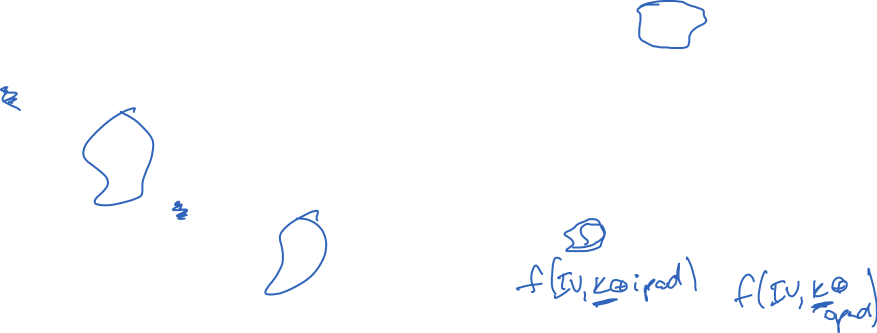 f(IV, K⊕ipad)
f(IV, K⊕
opad)